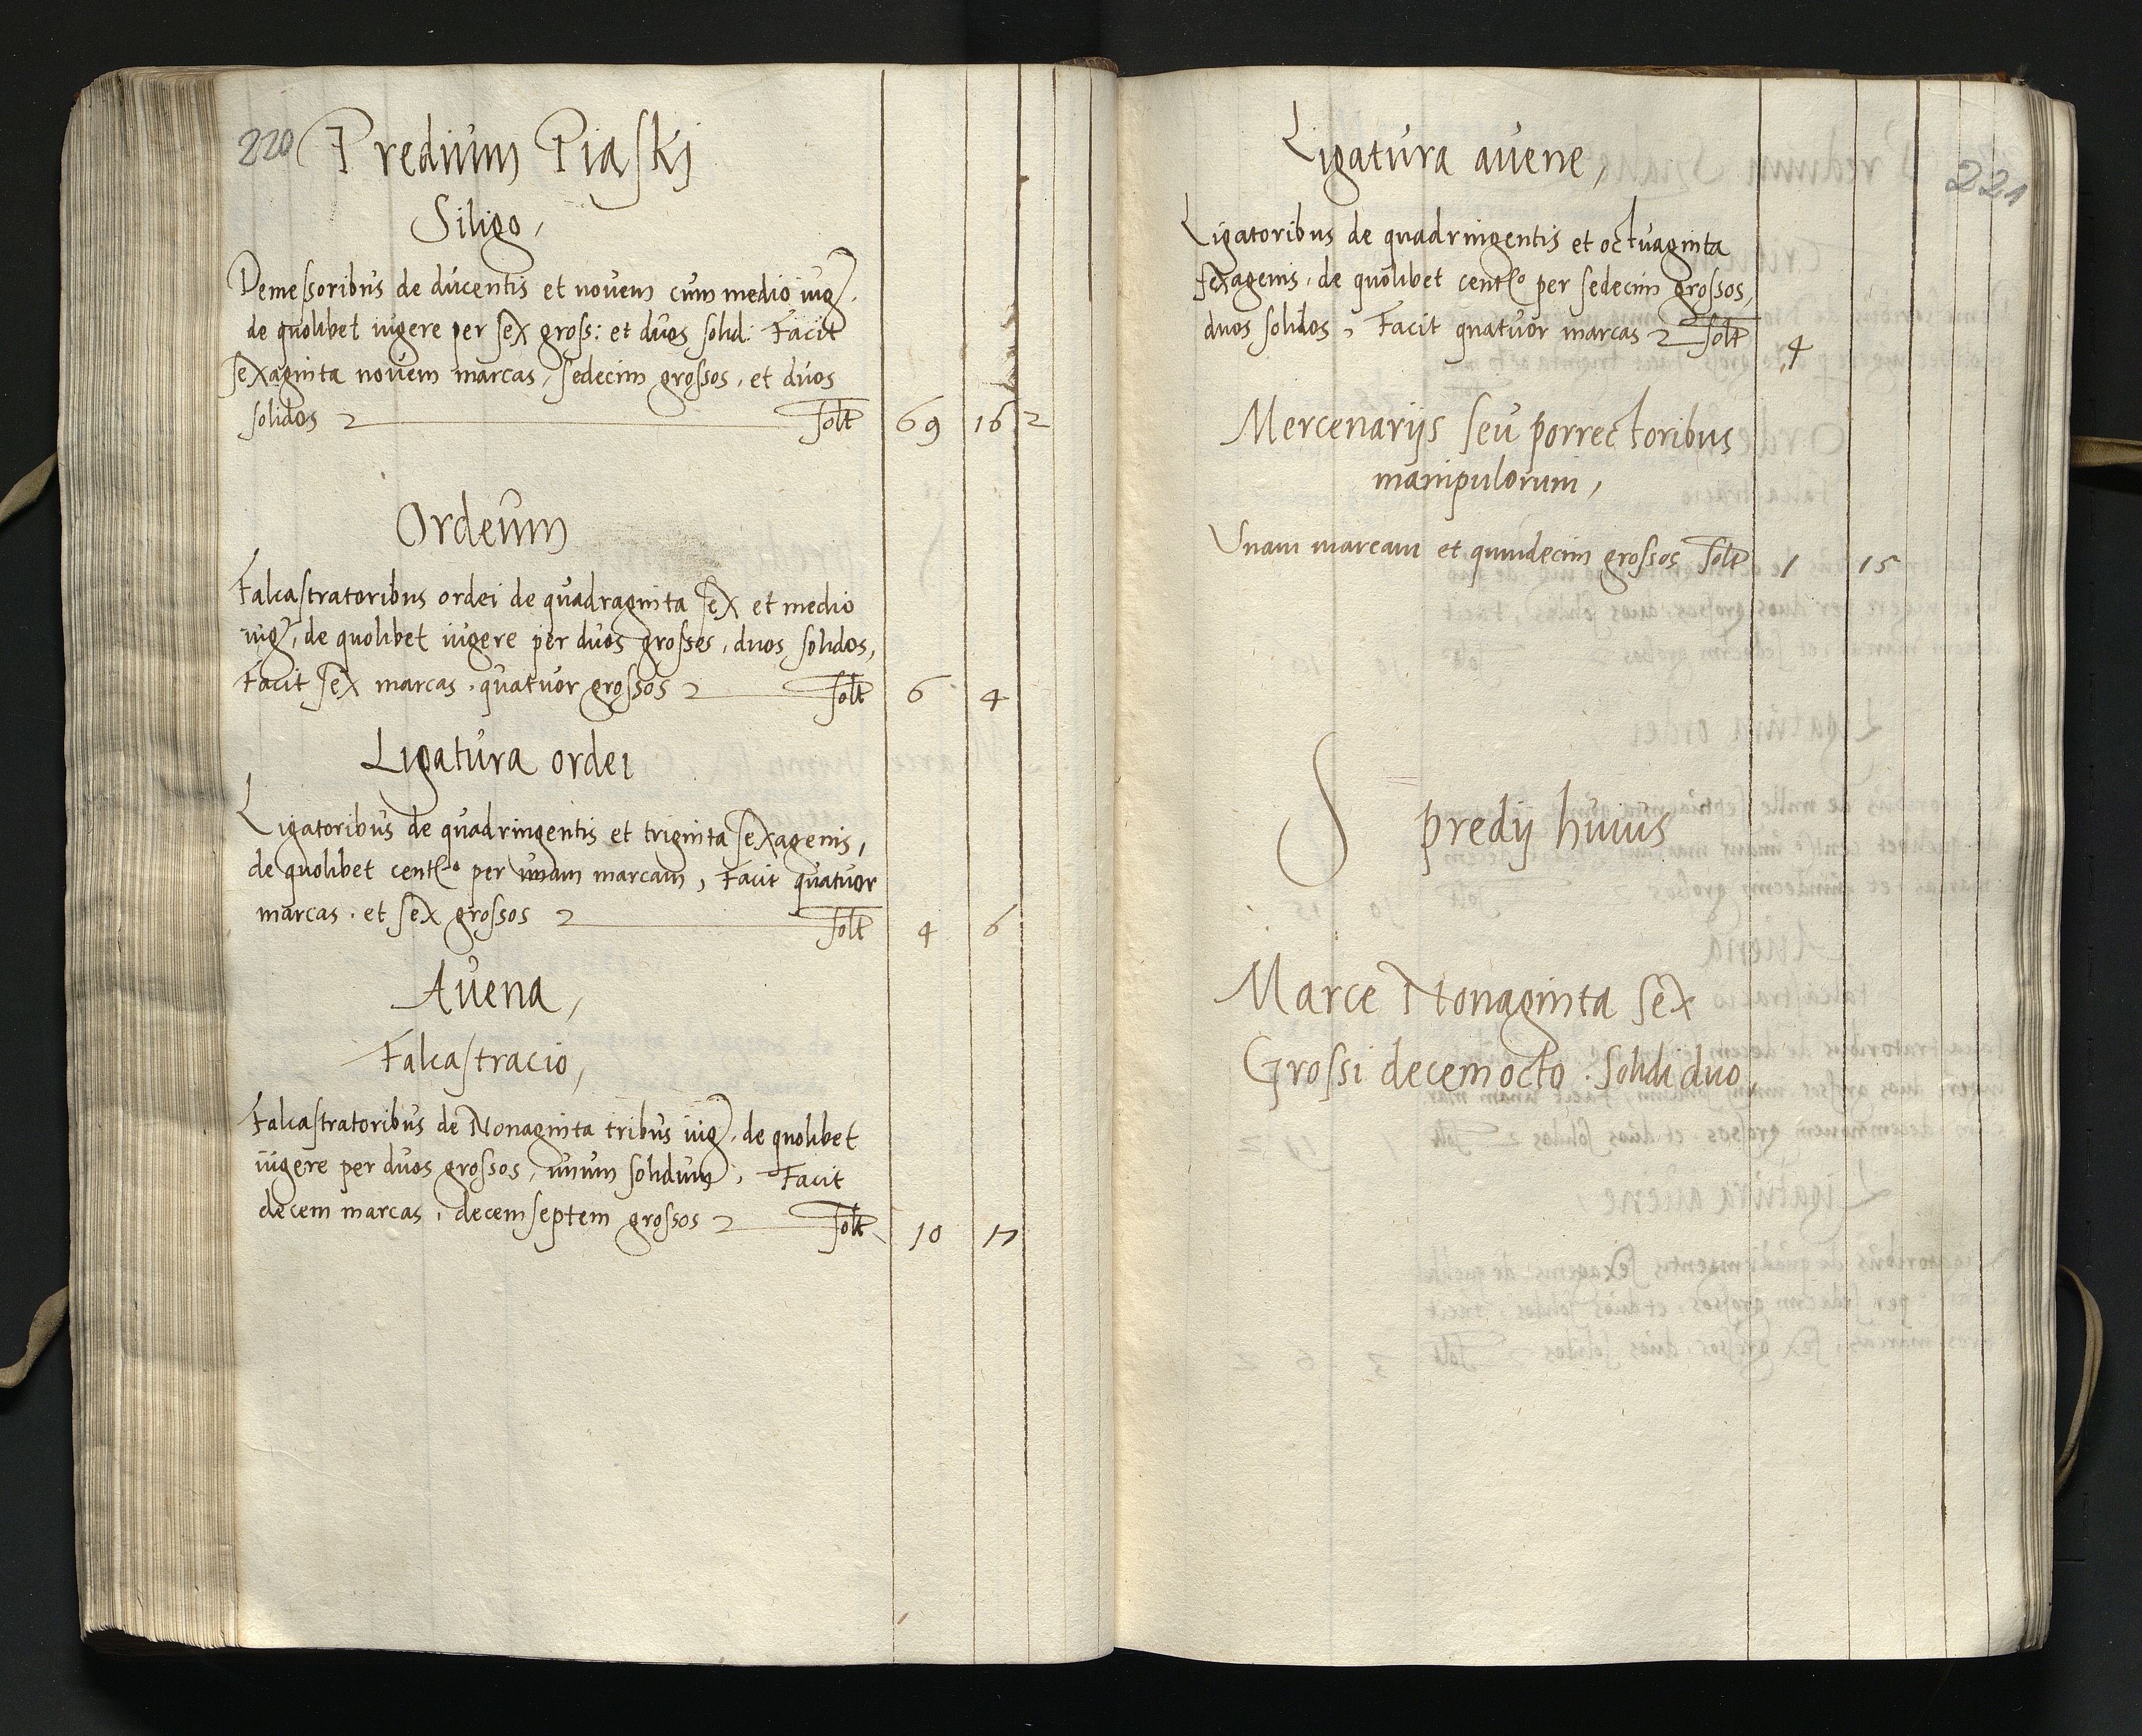 220 Predium Piaskj
Siligo,
Demessoribus de ducentis et novem cum medio iug.
de quolibet iugere per sex gross: et duos solid: Facit
sexaginta novem marcas, sedecim grossos, et duos
solidos 2 solt 69 16 2
Ordeum
Falcastratoribus ordei de quadraginta sex et medio
iug, de quolibet iugere per duos grosses, duos solidos,
Facit sex marcas, quatuor grossos 2 solt 6 4
Ligatura ordei
Ligatoribus de quadringentis et triginta sexagenis,
de quolibet centro per unam marcam, Facit quatuor
marcas, et sex grossos 2 solt 4 6
Avena,
Falcastracio,
Falcastratoribus de Nonaginta tribus iug, de quolibet
iugere per duos grossos, unum solidum, Facit
decem marcas, decemseptem grossos 2 solt 10 17
221
Ligatura avene,
Ligatoribus de quadringentis et octuaginta
sexagenis, de quolibet cento per sedecim grossos,
duos solidos, Facit quatuor marcas 2 solt 4
Mercenarijs seu porrectoribus
manipulorum,
Unam marcam et quindecim grossos solt 1 15
S predij huius
Marce Nonaginta sex
Grossi decemocto. Solidi duo,